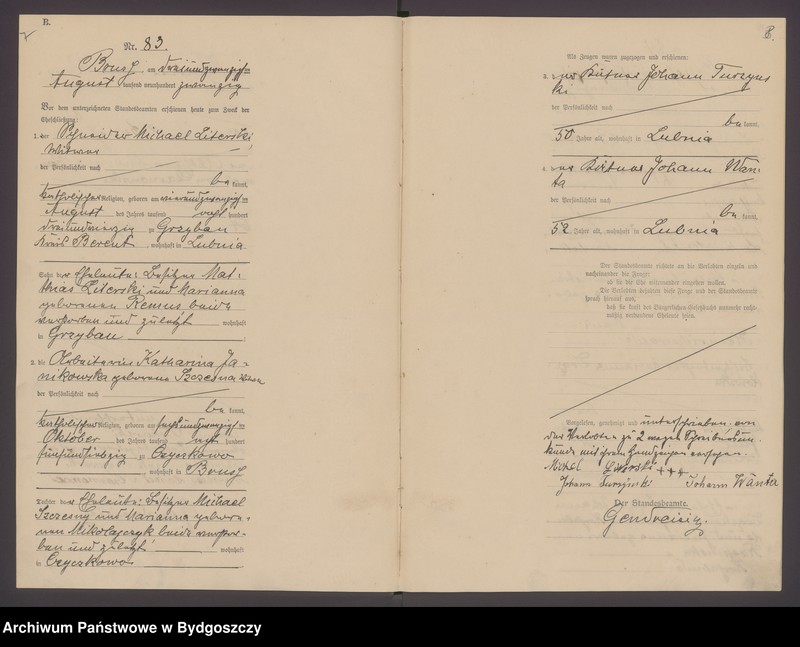 B.
Nr. 83.
Brusy am dreiundzwanzigsten
August tausend neunhundert zwanzig
Vor dem unterzeichneten Standesbeamten erschienen heute zum Zweck der
Eheschließung:
1. der Schneider Michael Literski
Witwer
der Persönlichkeit nach
be kannt,
katholischer Religion, geboren am vierundzwanzigsten
August des Jahres tausend acht hundert
zu Grzybau
Kreis Berent, wohnhaft in Lubnia
Sohn der Eheleute: Besitzer Mat-
thias Literski und Marianna
geborenen Remus beide
verstorben und zuletzt wohnhaft
in Grzybau
2. die Arbeiterin Katharina Ja-
nikowska geborene Szczesna Witwe
der Persönlichkeit nach
be kannt,
katholischer Religion, geboren am sechsundzwanzigsten
Oktober des Jahres tausend acht hundert
fünfundsiebzig zu Czyczkowo
wohnhaft in Brusy
Tochter der Eheleute: Besitzer Michael
Szczesny und Marianna gebore-
nen Mikolajczyk beide verstor-
ben und zuletzt wohnhaft
in Czyczkowo
B.
Als Zeugen waren zugezogen und erschienen:
3. der Kätner Johann Turzyns
ki
der Persönlichkeit nach
be kannt,
50 Jahre alt, wohnhaft in Lubnia
4. der Kätner Johann Wan-
ta
der Persönlichkeit nach
be kannt,
52 Jahre alt, wohnhaft in Lubnia
Der Standesbeamte richtete an die Verlobten einzeln und
nacheinander die Frage:
ob sie die Ehe miteinander eingehen wollen.
Die Verlobten bejahten diese Frage und der Standesbeamte
sprach hierauf aus,
daß sie kraft des Bürgerlichen Gesetzbuchs nunmehr recht-
mäßig verbundene Eheleute seien.
Vorgelesen, genehmigt und unterschrieben, von
der Verlobten zu 2 wegen Schreibunkun-
kunde mit ihrem Handzeichen versehen.
Michael Literski +++
Johann Turzyński Johann Wanta
Der Standesbeamte.
Archiwum Państwowe w Bydgoszczy